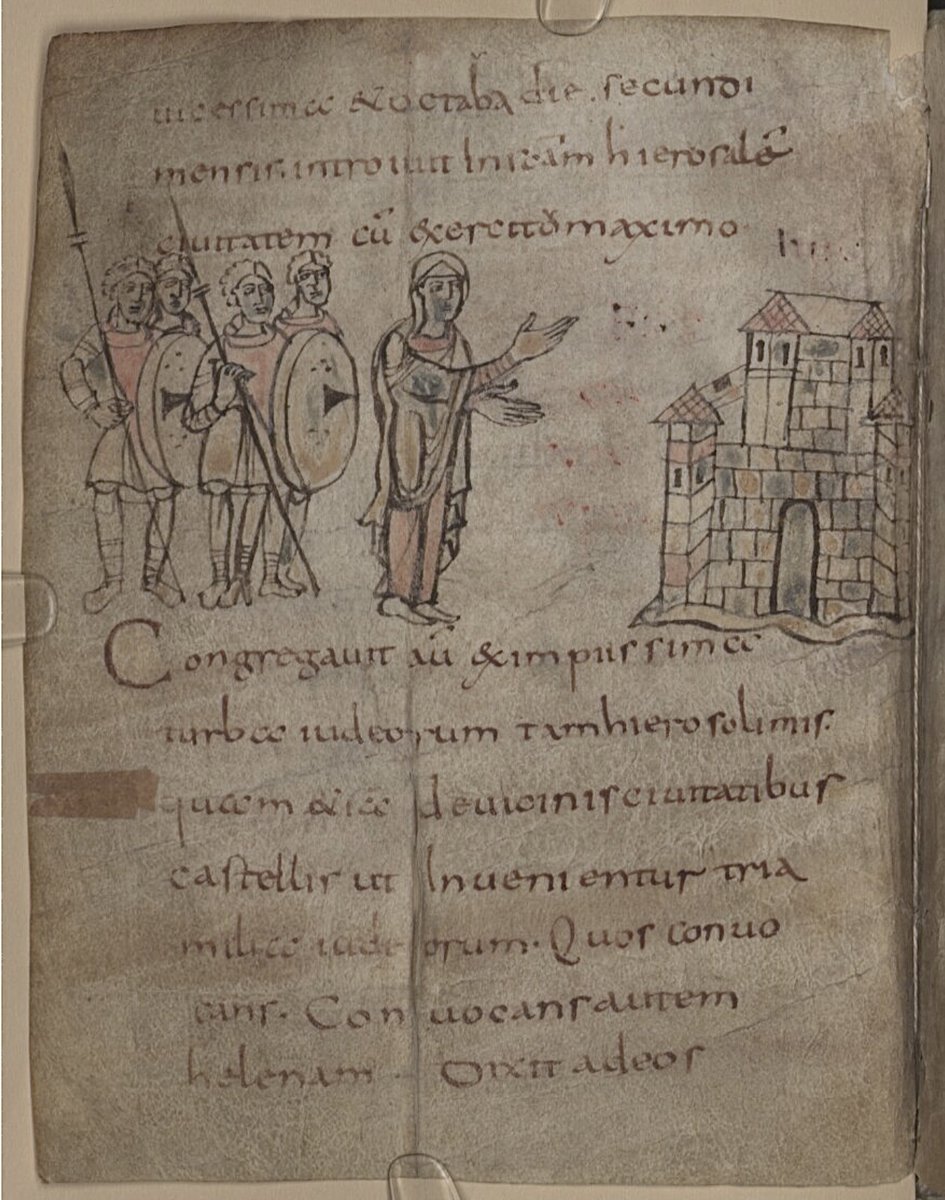 uicessima & octaba die. secundi
mensis. introiuit In scām hierosalē
ciuitatem cū & exercitū maximo
Congregauit aū & impiissima
turba iudeorum tam hierosolimis.
quam & ia de uicinis ciuitatibus
castellis ut Inuenientur tria
milia iudeorum. Quos conuo
cans. Conuocans autem
helenam Dixit ad eos